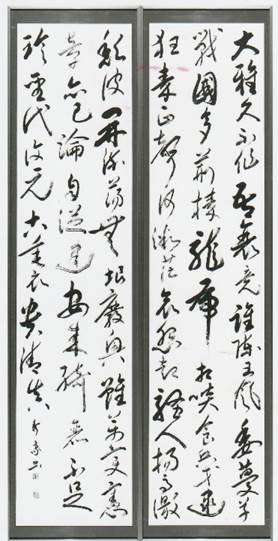 大雅久不作吾衰竟誰陳王風委蔓草
戰國多荊榛龍虎相啖食兵戈逮
狂秦正聲何微茫哀怨起騷人揚馬激
頹波開流蕩無垠廢興雖萬變憲
章亦已淪自從建安來綺麗不足
珍聖代復元古垂衣貴清真